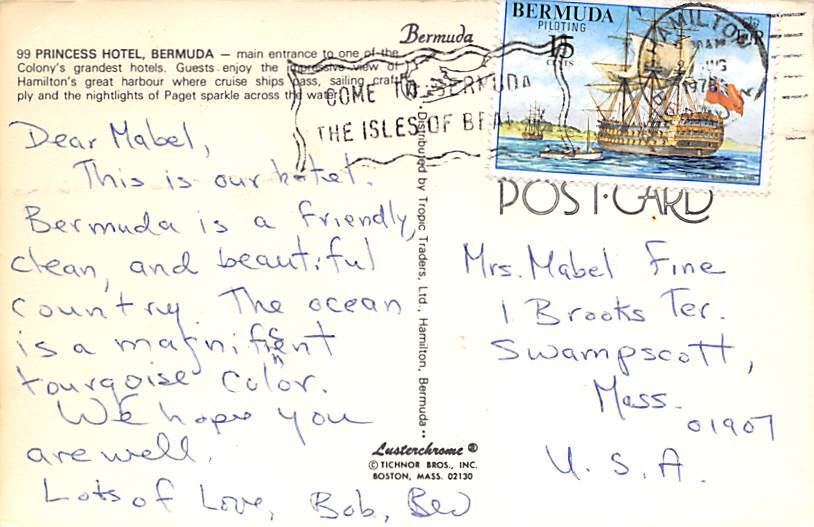 Bermuda
99 PRINCESS HOTEL, BERMUDA — main entrance to one of the
Colony's grandest hotels. Guests enjoy the impressive view of
Hamilton's great harbour where cruise ships pass, sailing craft
ply and the nightlights of Paget sparkle across the water.
COME TO BERMUDA
THE ISLES OF
BERMUDA
PILOTING
15
CENTS
HAMILTON
1978
POST CARD
Dear Mabel,
This is our hotel.
Bermuda is a friendly,
clean, and beautiful
country. The ocean
is a magnificent
tourqoise color.
We hope you
are well.
Lots of Love, Bob, Bev
Distributed by Tropic Traders, Ltd., Hamilton, Bermuda
Mrs. Mabel Fine
1 Brooks Ter.
Swampscott,
Mass.
01907
U.S.A.
Lusterchrome ®
© TICHNOR BROS., INC.
BOSTON, MASS. 02130